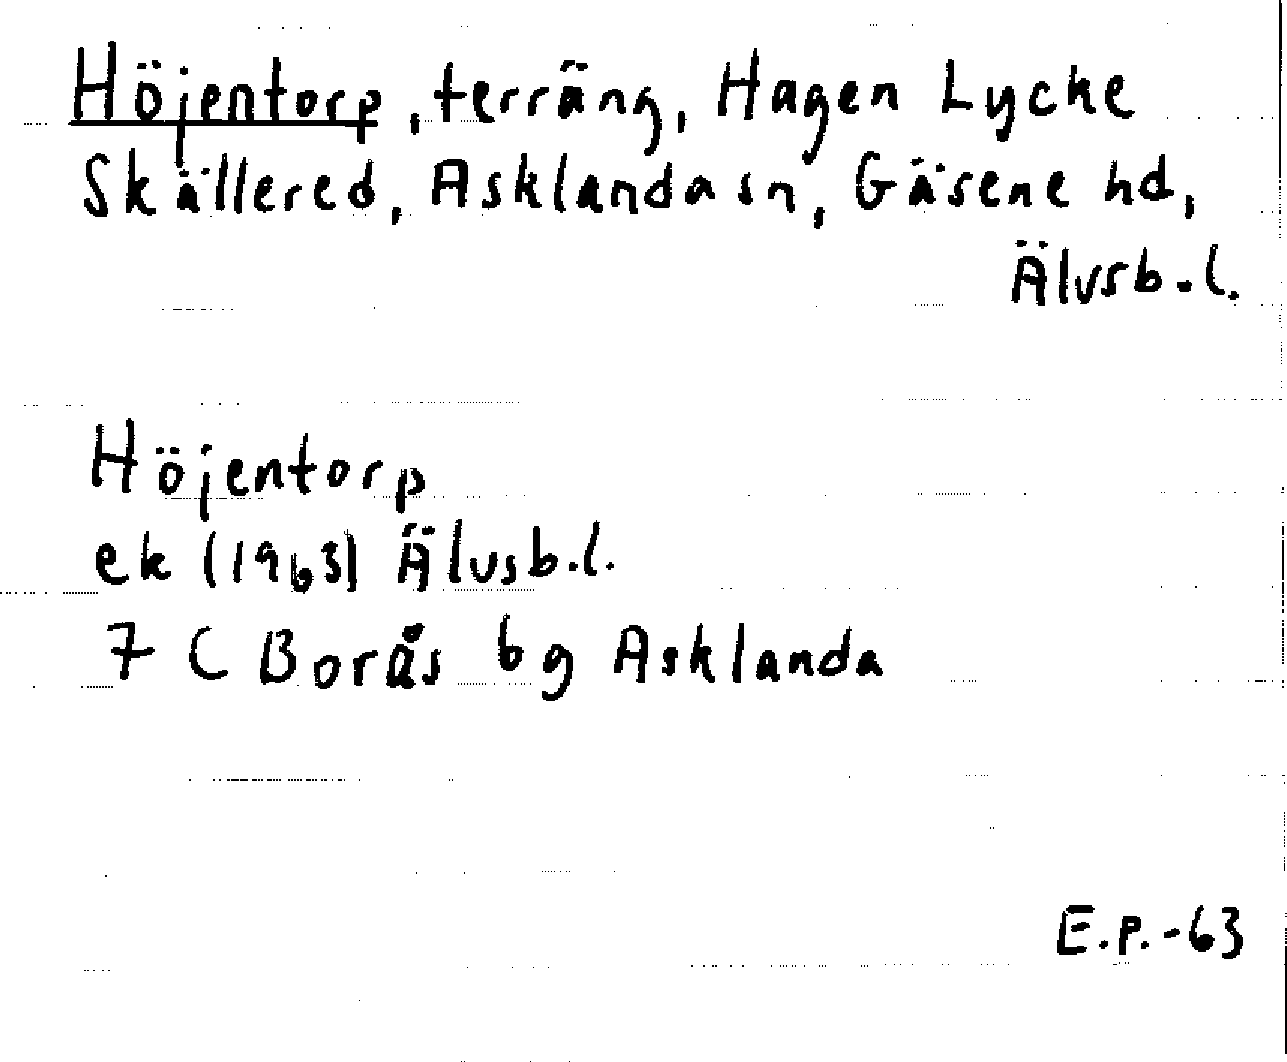 Höjentorp, terräng, Hagen Lycke
Skällered, Asklanda sn, Gäsene hd,
Älvsb.l.
Höjentorp
ek (1963) Älvsb.l.
7 C Borås 6g Asklanda
E.P.-63